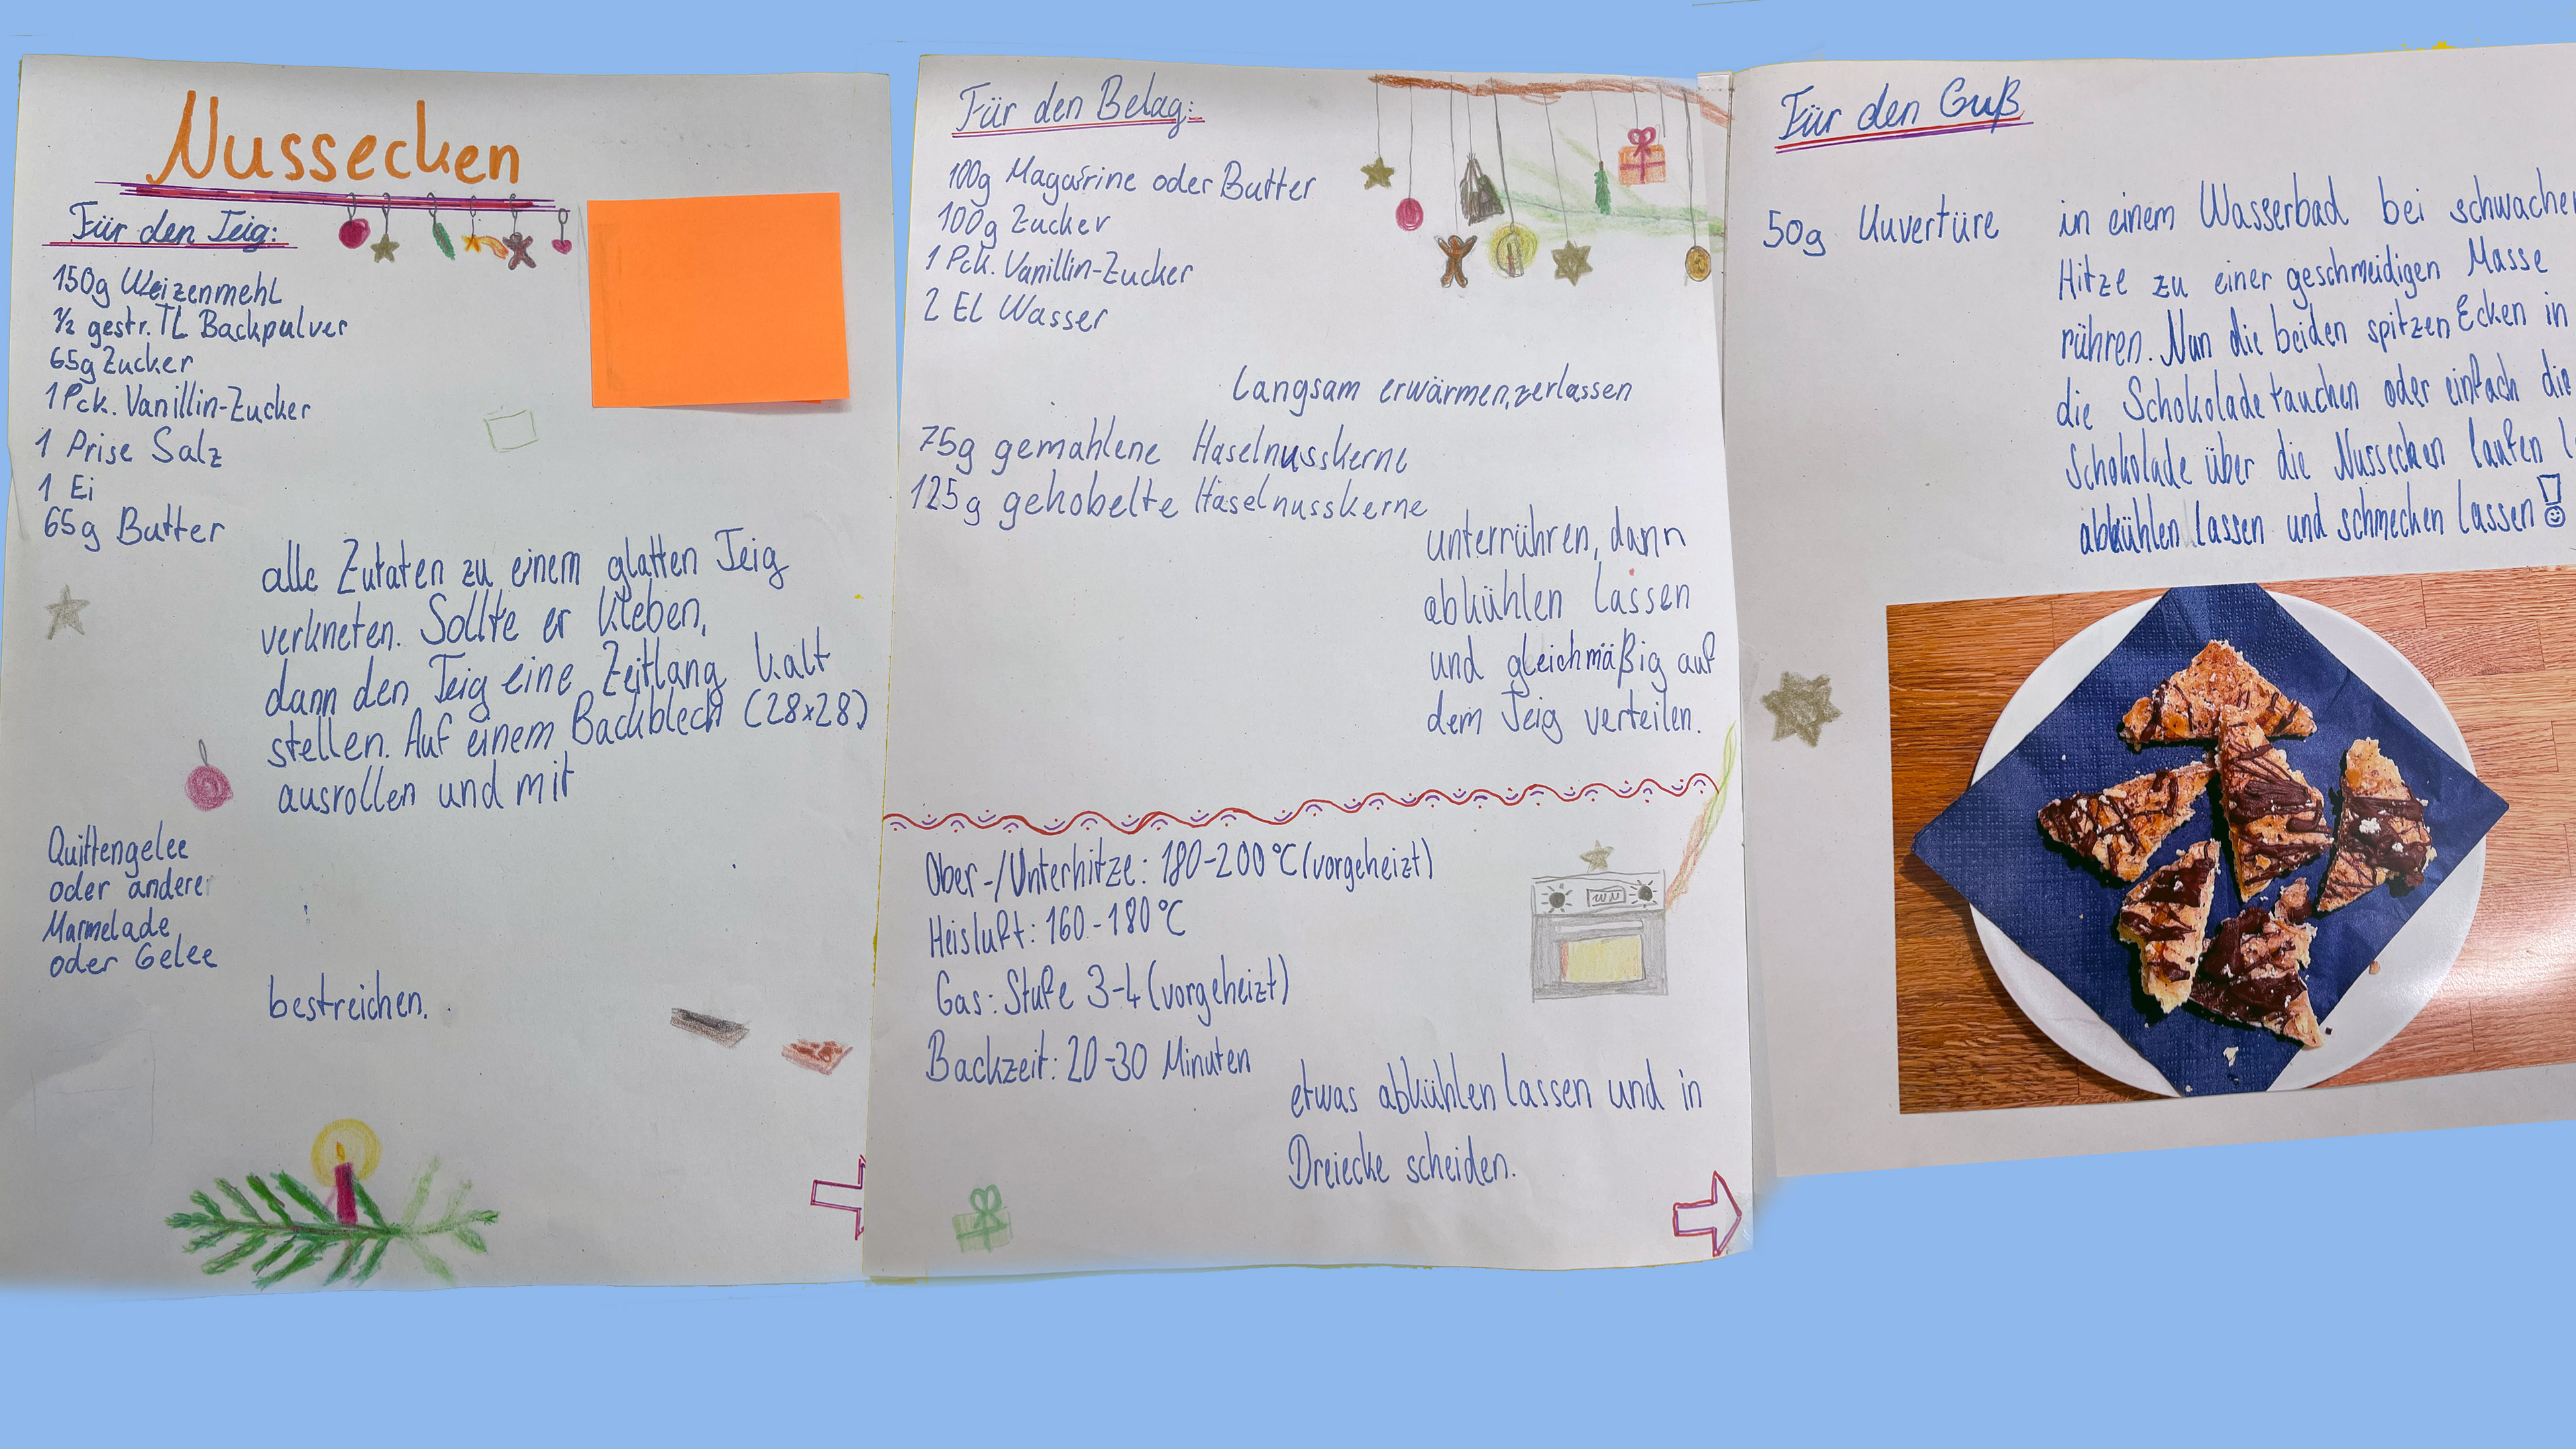 Nussecken
Für den Teig:
150g Weizenmehl
1/2 gestr. TL Backpulver
65g Zucker
1 Pck. Vanillin-Zucker
1 Prise Salz
1 Ei
65g Butter
alle Zutaten zu einem glatten Teig
verkneten. Sollte er kleben,
dann den Teig eine Zeitlang kalt
stellen. Auf einem Backblech (28x28)
ausrollen und mit
Quittengelee
oder andere
Marmelade
oder Gelee
bestreichen.
Für den Belag:
100g Magarine oder Butter
100g Zucker
1 Pck. Vanillin-Zucker
2 El Wasser
Langsam erwärmen, zerlassen
75g gemahlene Haselnusskerne
125g gehobelte Haselnusskerne
unterrühren, dann
abkühlen lassen
und gleichmäßig auf
dem Teig verteilen.
Ober-/Unterhitze: 180-200°C (vorgeheizt)
Heisluft: 160-180°C
Gas: Stufe 3-4 (vorgeheizt)
Backzeit: 20-30 Minuten
etwas abkühlen lassen und in
Dreiecke scheiden.
Für den Guß
50g Kuvertüre
in einem Wasserbad bei
Hitze zu einer geschmeidigen Masse
rühren. Nun die beiden spitzen Ecken in
die Schokolade tauchen oder einfach die
Schokolade über die Nussecken laufen
abkühlen lassen und schmecken lassen!